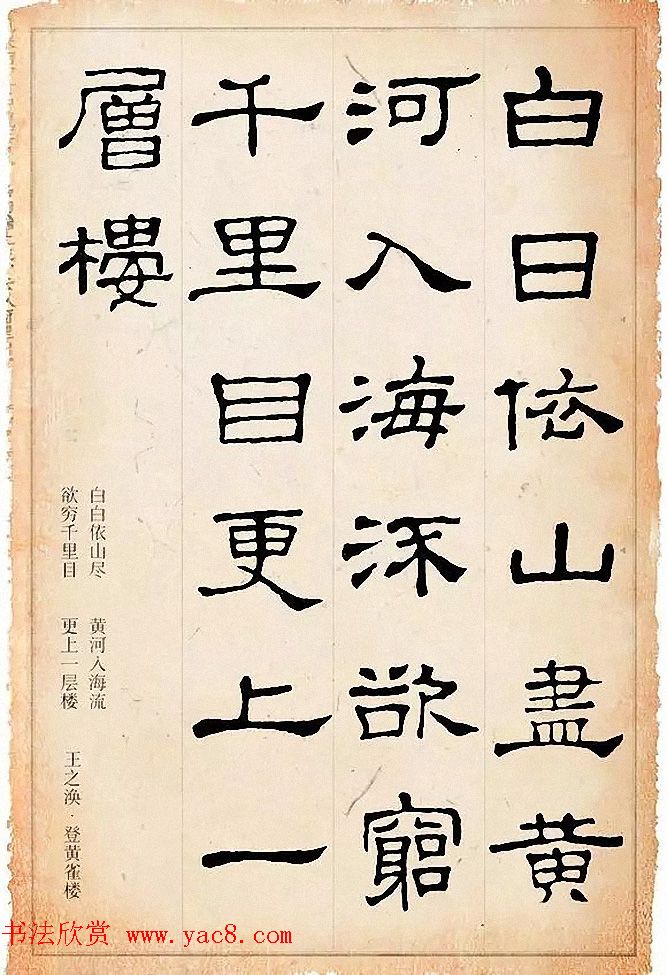 白日依山盡黄
河入海流欲窮
千里目更上一
層樓
白白依山尽 黄河入海流
欲穷千里目 更上一层楼
王之涣·登黄雀楼
书法欣赏 www.yac8.com